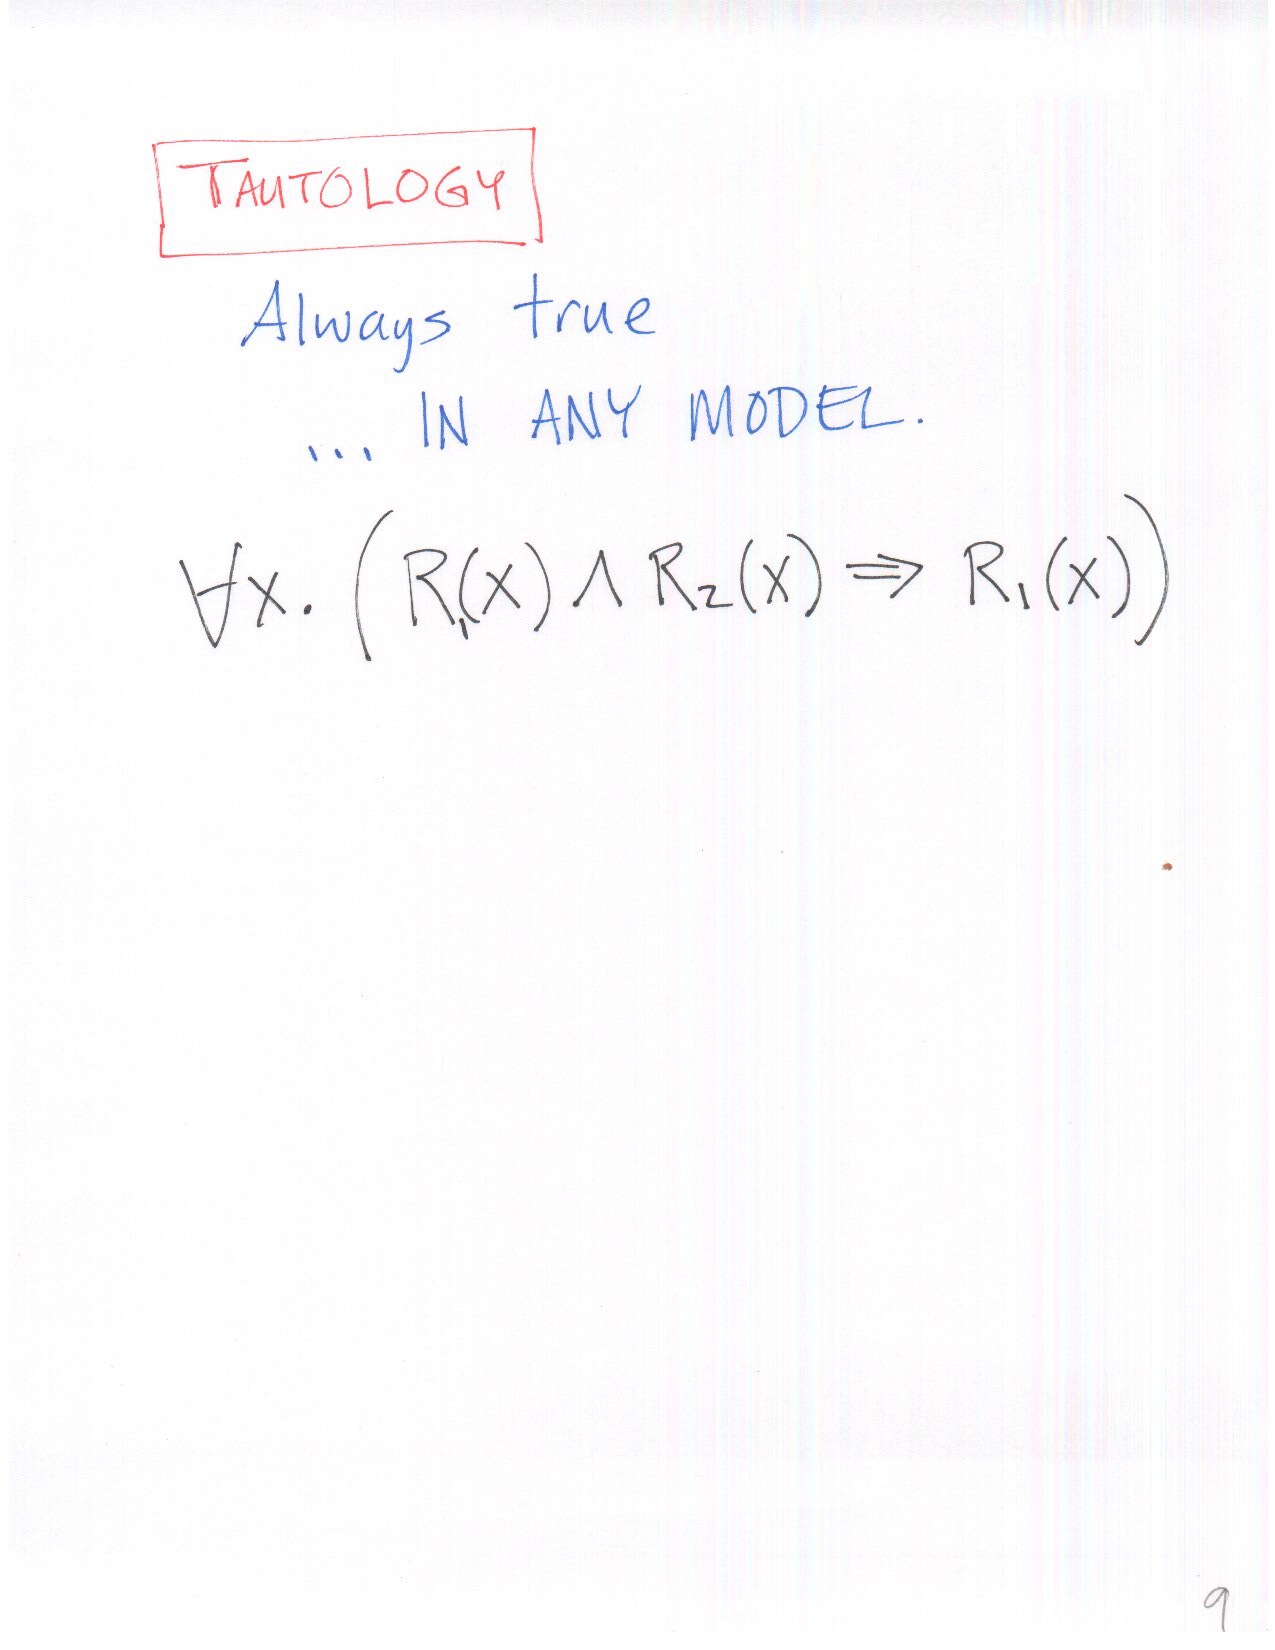 TAUTOLOGY
Always true
... IN ANY MODEL.
∀x. (R₁(x) ∧ R₂(x) ⇒ R₁(x))
9